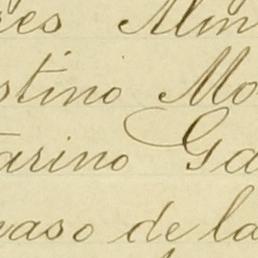 res Alm
stino Mo
tarino Ga
naso de la